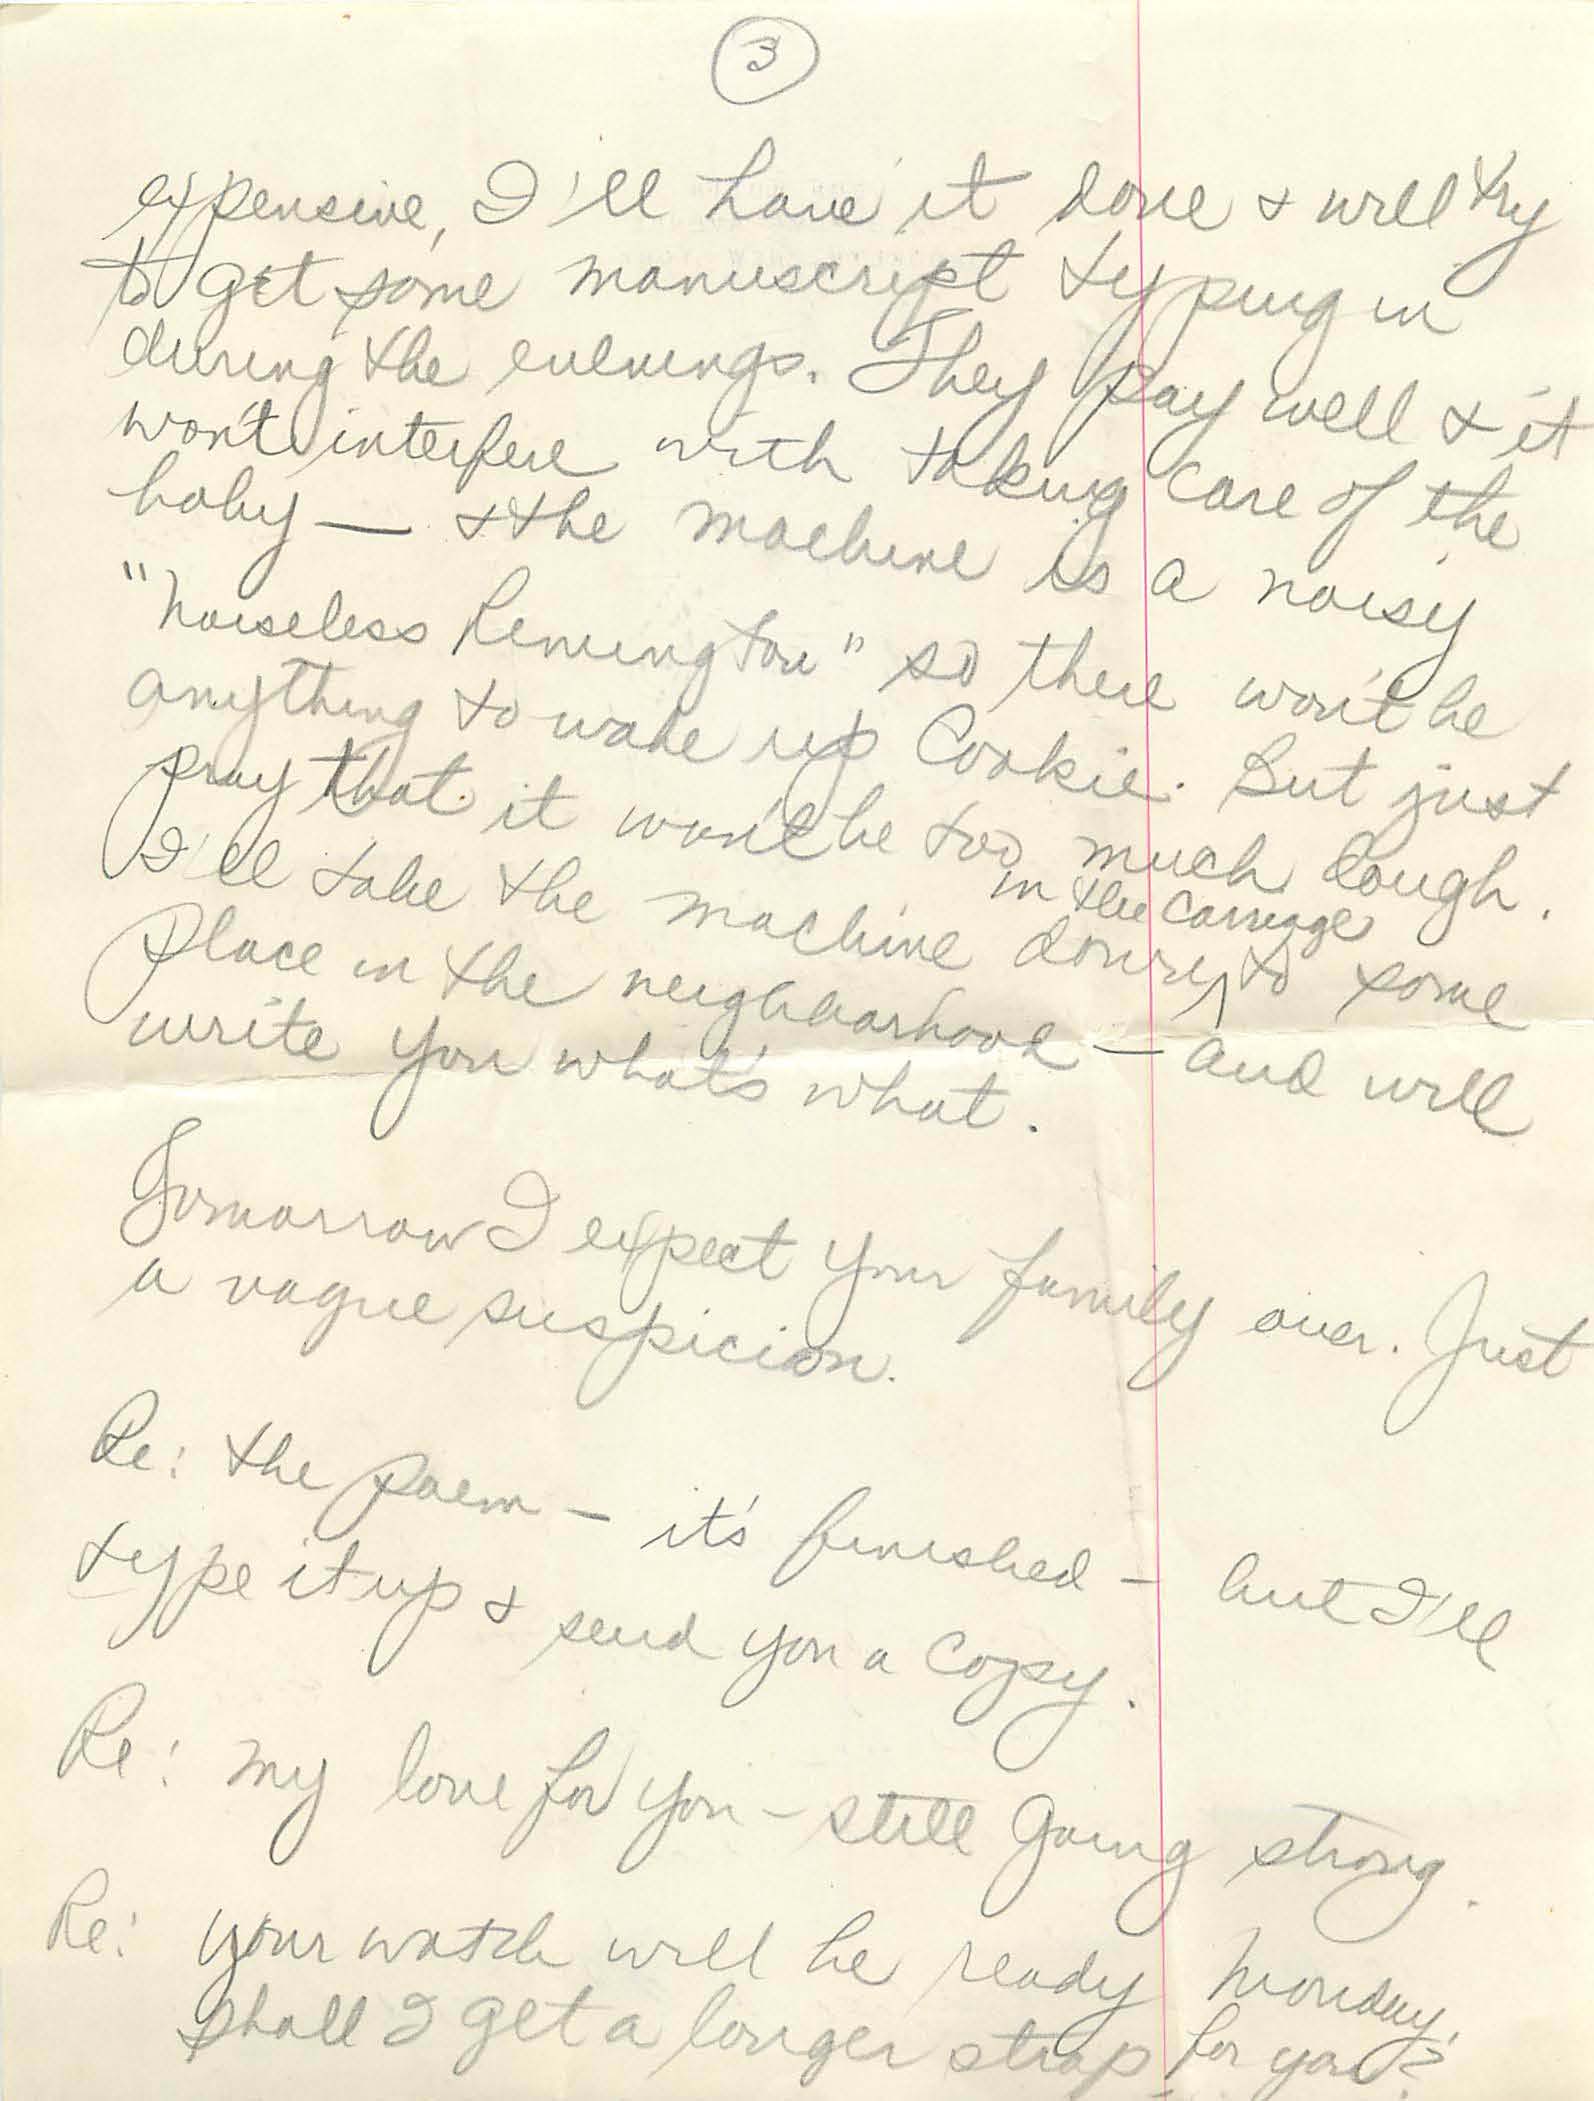 3
expensive, I'll have it done & will try
to get some manuscript typing in
during the evenings. They pay well & it
won't interfere with taking care of the
baby — & the machine is a noisy
"Noiseless Remington" so there won't be
anything to wake up Cookie. But just
pray that it won't be too much dough.
I'll take the machine down in the carriage to some
place in the neighborhood — and will
write you what's what.
Tomorrow I expect your family over. Just
a vague suspicion.
Re: the poem — it's finished — but I'll
type it up & send you a copy.
Re: my love for you — still going strong.
Re: your watch will be ready Monday.
Shall I get a longer strap for you?